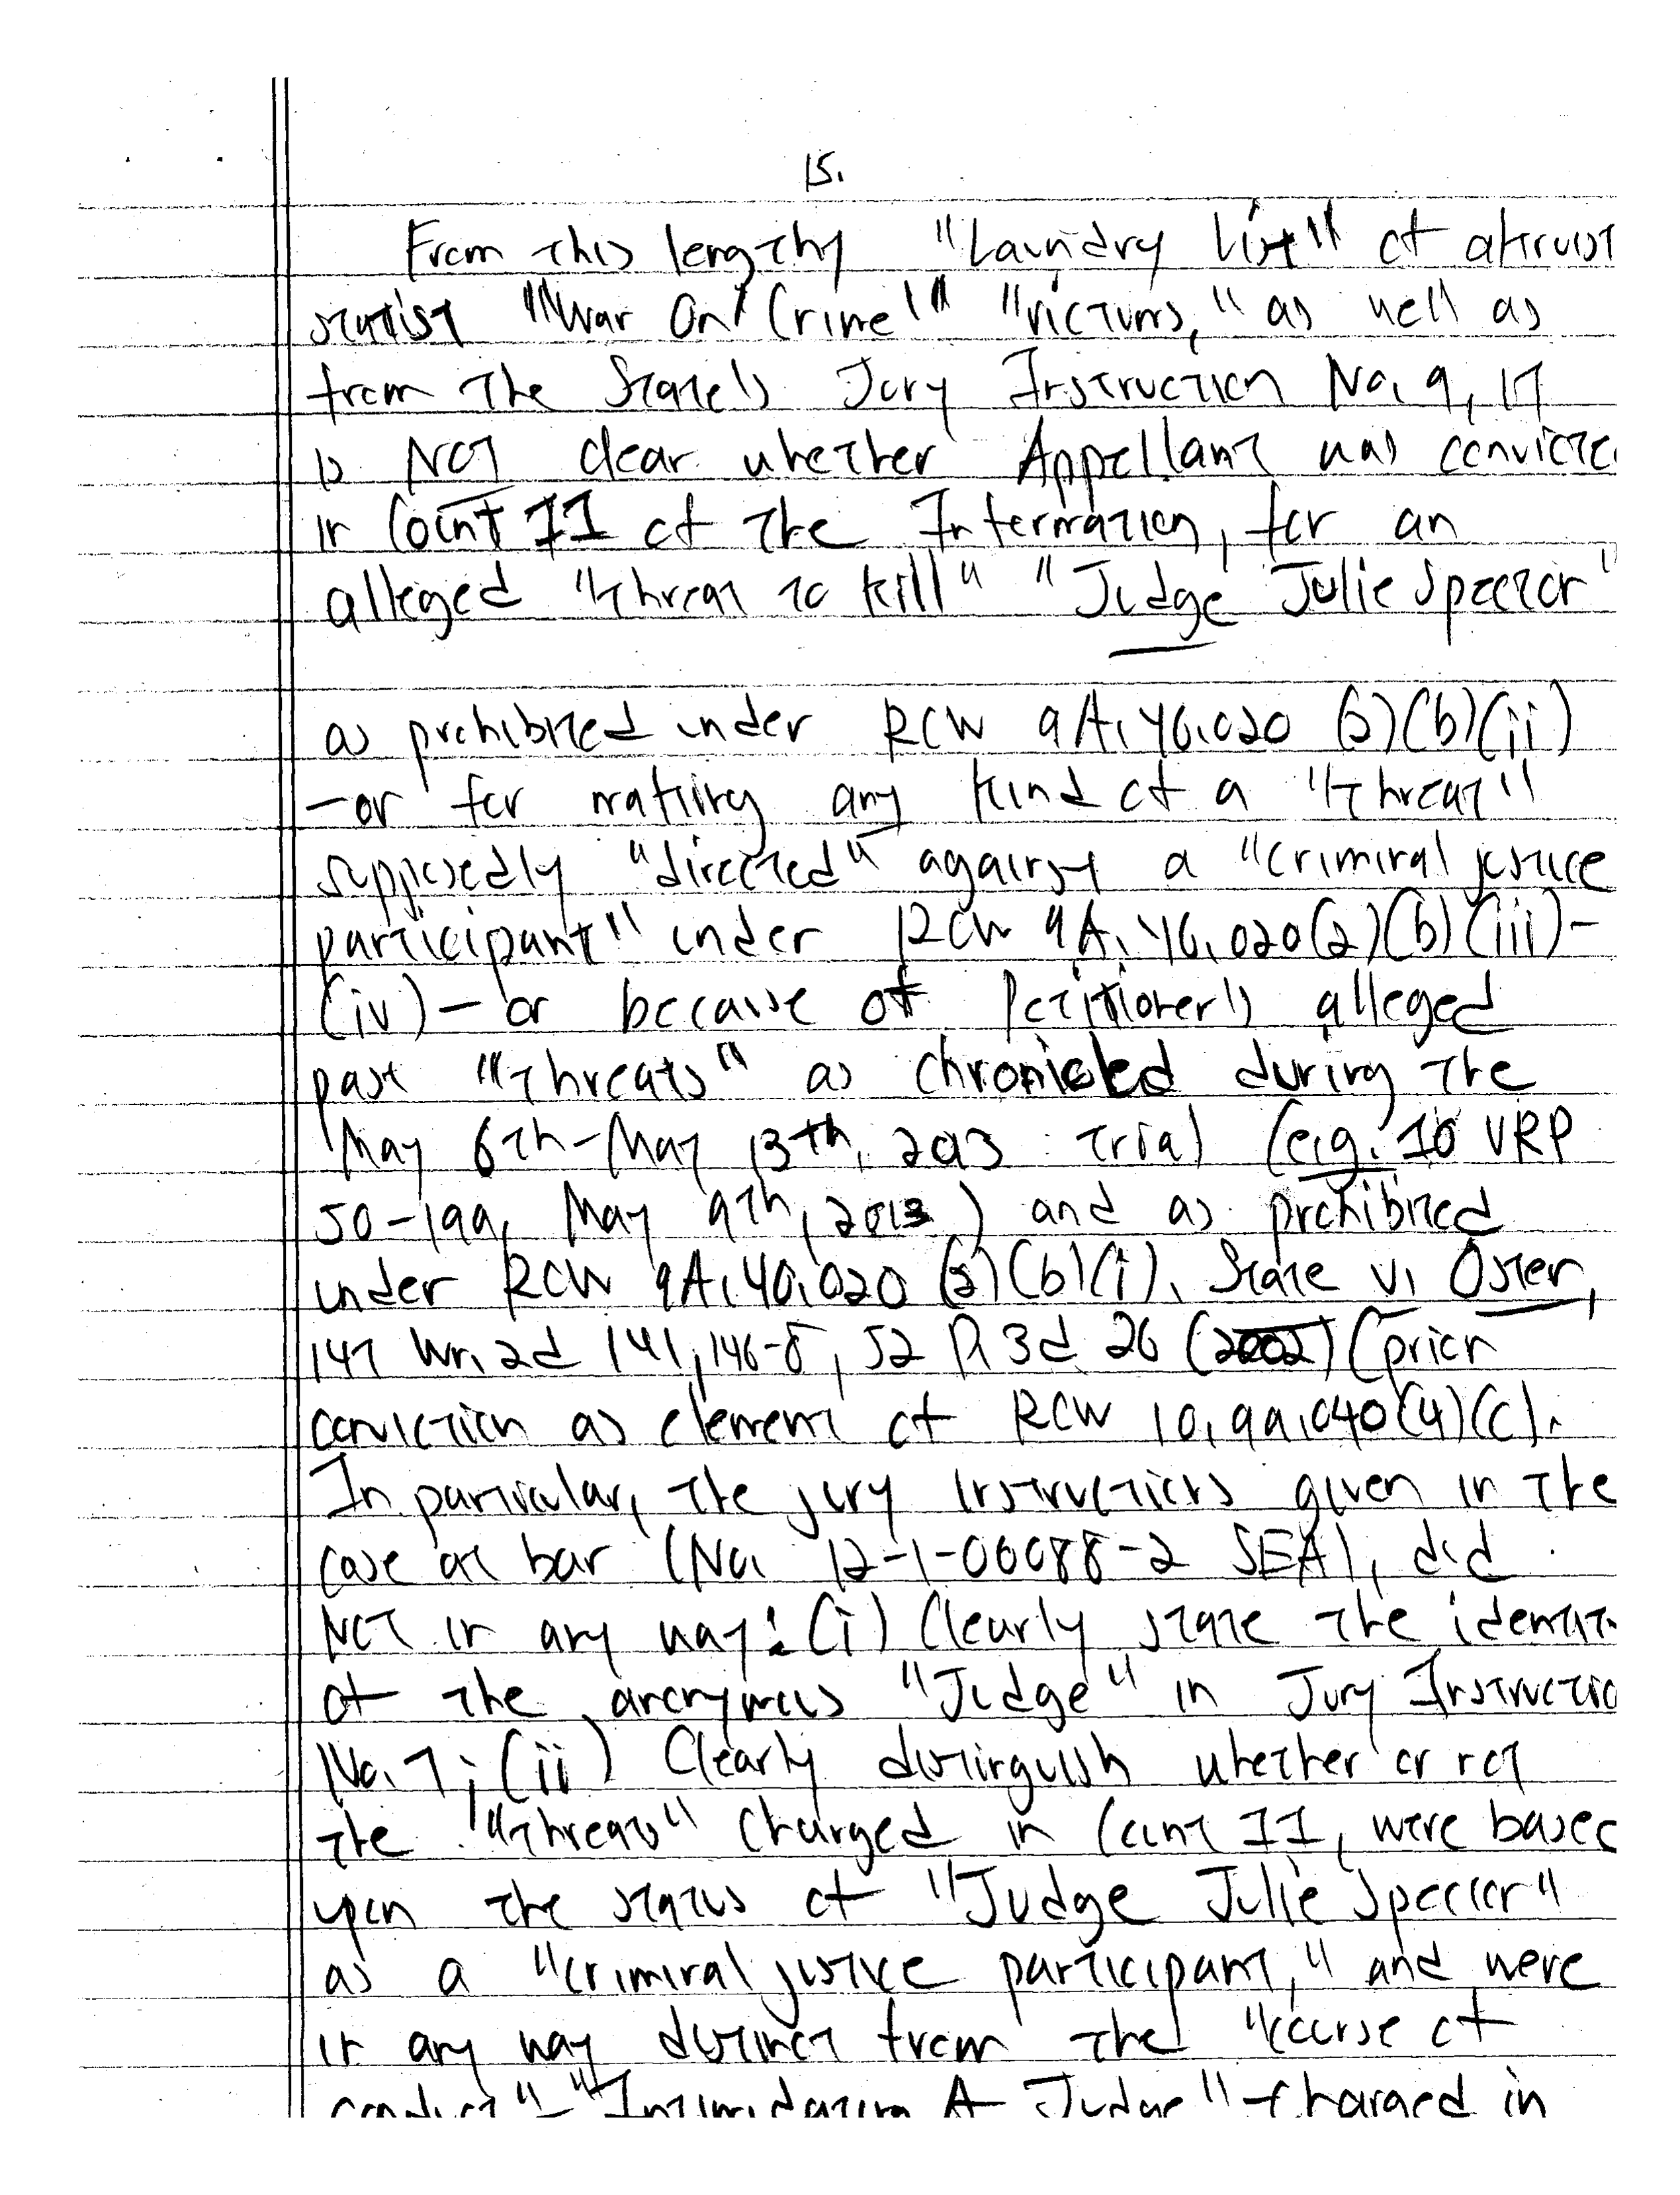 15.
From this lengthy "Laundry List" of altruist
statist "'War On Crime'" "victims," as well as
from the State's Jury Instruction No. 9, it
is NOT clear whether Appellant was convicte
in Count II of the Information, for an
alleged "threat to kill" "Judge Julie Spector"
as prohibited under RCW 9A.46.020 (2)(b)(ii)
—or for making any kind of a "threat"
supposedly "directed" against a "criminal justice
participant" under RCW 9A.46.020(2)(b)(iii)-
(iv) — or because of Petitioner's alleged
past "threats" as chronicled during the
May 6th-May 13th, 2013 trial (e.g. 10 VRP
50-199, May 9th, 2013) and as prohibited
under RCW 9A.40.020 (2)(b)(i). State v. Oster,
147 Wn. 2d 141, 146-8, 52 P. 3d 26 (2002) (prior
conviction as element of RCW 10.99.040(4)(c).
In particular, the jury instructions given in the
case at bar (No. 12-1-00088-2 SEA), did
NOT in any way: (i) Clearly state the identit
of the anonymous "Judge" in Jury Instructio
No. 7; (ii) Clearly distinguish whether or not
the "threats" charged in Count II, were based
upon the status of "Judge Julie Spector"
as a "criminal justice participant," and were
in any way distinct from the "course of
conduct" - "Intimidating A Judge" - charged in